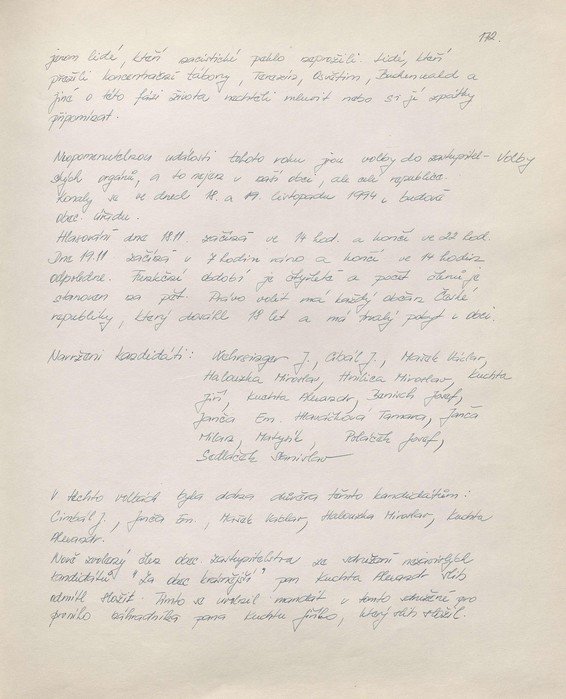 172.
jenom lidé, kteří nacistické peklo neprožili. Lidé, kteří
prožili koncentrační tábory, Terezín, Osvětim, Buchenwald a
jiné o této fázi života nechtěli mluvit nebo si ji zpátky
připomínat.
Neopomenutelnou událostí tohoto roku jsou volby do zastupitel- Volby
ských orgánů, a to nejen v naší obci, ale celé republice.
Konaly se ve dnech 18. a 19. listopadu 1994 v budově
obec. úřadu.
Hlasování dne 18.11. začíná ve 14 hod. a končí ve 22 hod.
Dne 19.11 začíná v 7 hodin ráno a končí ve 14 hodin
odpoledne. Funkční období je čtyřleté a počet členů je
stanoven na pět. Právo volit má každý občan České
republiky, který dosáhl 18 let a má trvalý pobyt v obci.
Navržení kandidáti: J., J., Mašek Václav,
Halouzka Miroslav, Hnilica Miroslav, Kuchta
Jiří, Kuchta Alexandr, Josef,
Janča Em. Hlaváčková Tamara, Janča
Milan, Matysík, Poláček Josef,
Sedláček Stanislav
V těchto volbách byla dána důvěra těmto kandidátům:
Cimbál J., Janča Em., Mašek Václav, Halouzka Miroslav, Kuchta
Alexandr.
Nově zvolený člen obec. zastupitelstva ze sdružení nezávislých
kandidátů "Za obec krásnější" pan Kuchta Alexandr slib
odmítl složit. Tímto se uvolnil mandát v tomto sdružení pro
prvního náhradníka pana Kuchtu Jiřího, který slib složil.